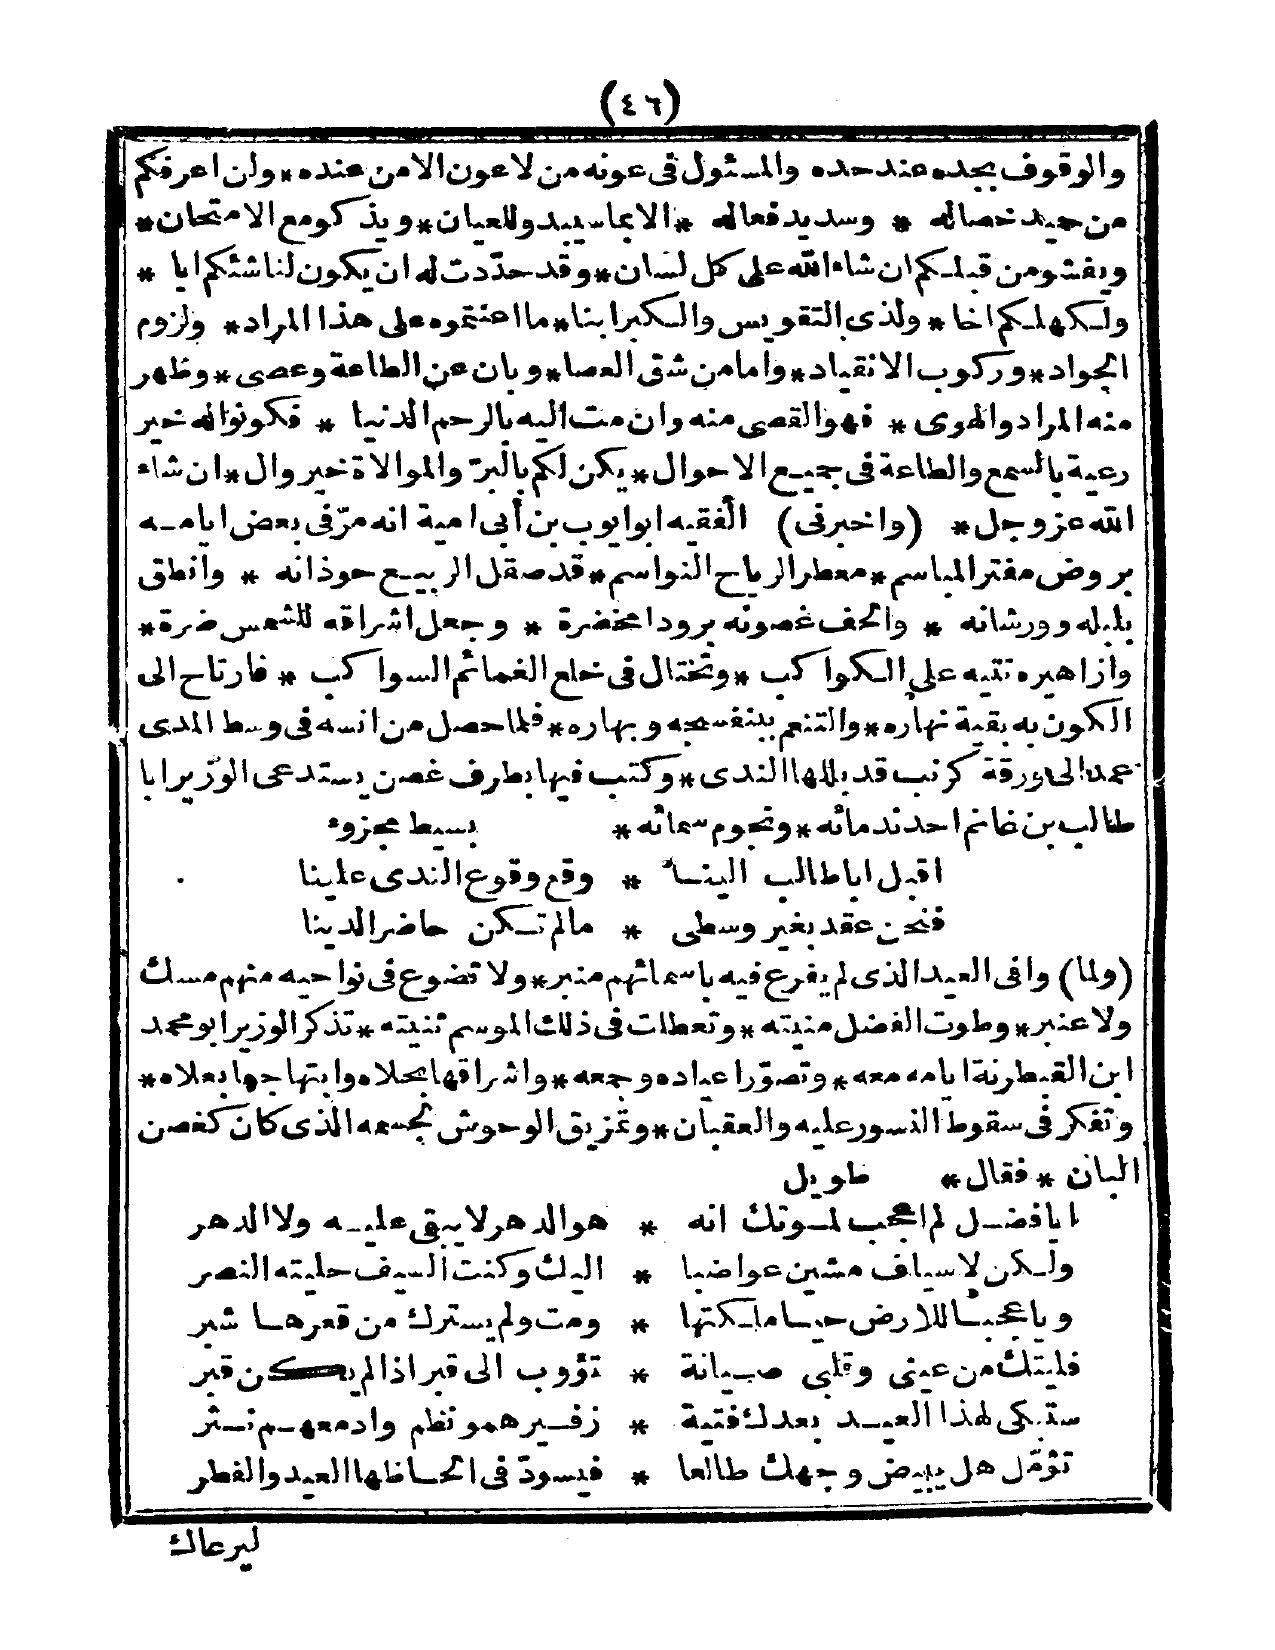 (٤٦)
والوقوف بجده عند حده والمسئول فى عونه من لا عون الا من عنده * ولن اعرفكم
من حميد خصاله * وسديد فعاله * الا بما سيبدو للعيان * ويذكو مع الامتحان *
ويفشو من قبلكم ان شاء الله على كل لسان * وقد حدّدت له ان يكون لناشئكم ابا *
ولكهلكم اخا * ولذى التقويس والكبر ابنا * ما اعنتموه على هذا المراد * ولزوم
الجواد * وركوب الانقياد * واما من شق العصا * وبان عن الطاعة وعصى * وظهر
منه المراد والهوى * فهو القصى منه وان مت اليه بالرحم الدنيا * فكونوا له خير
رعية بالسمع والطاعة فى جميع الاحوال * يكن لكم بالبرّ والموالاة خير وال * ان شاء
الله عز وجل * (واخبرنى) الفقيه ابو ايوب بن أبى امية انه مرّ فى بعض ايامه
بروض مفتر المباسم * معطر الرياح النواسم * قد صقل الربيع حوذانه * وانطق
بلبله وورشانه * والحف غصونه برودا مخضرة * وجعل اشراقه للشمس ضرة *
وازاهيره تتيه على الكواكب * وتختال فى خلع الغمائم السواكب * فارتاح الى
الكون به بقية نهاره * والتنعم ببنفسجه وبهاره * فلما حصل من انسه فى وسط المدى
عمد الى ورقة كرنب قد بللها الندى * وكتب فيها بطرف غصن يستدعى الوزير ابا
طالب بن غانم احد ندمائه * ونجوم سمائه * بسيط مجزوء
اقبل ابا طالب الينا * وقع وقوع الندى علينا
فنحن عقد بغير وسطى * مالم تكن حاضر الدينا
(ولما) وافى العيد الذى لم يفرع فيه باسمائهم منبر * ولا تضوع فى نواحيه منهم مسك
ولا عنبر * وطوت الفضل منيته * وتعطلت فى ذلك الموسم ثنيته * تذكر الوزير ابو محمد
ابن القبطرنة ايامه معه * وتصوّر اعياده وجمعه * واشراقها بحلاه وابتهاجها بعلاه *
وتفكر فى سقوط النسور عليه والعقبان * وتمزيق الوحوش لجسمه الذى كان كغصن
البان * فقال * طويل
ايا فضل لم اعجب لموتك انه * هو الدهر لا يبقى عليه ولا الدهر
ولكن لاسياف مشين عواضبا * اليك وكنت السيف حليته النصر
ويا عجبا للارض حيا ملكتها * ومت ولم يسترك من قعرها شبر
فليتك من عينى وقلبى صيانة * تؤوب الى قبر اذا لم يكن قبر
ستبكى لهذا العيد بعدك فتية * زفيرهمو نظم وادمعهم نثر
تؤمّل هل يبيض وجهك طالعا * فيسودّ فى الحاظها العيد والفطر
ليرعاك